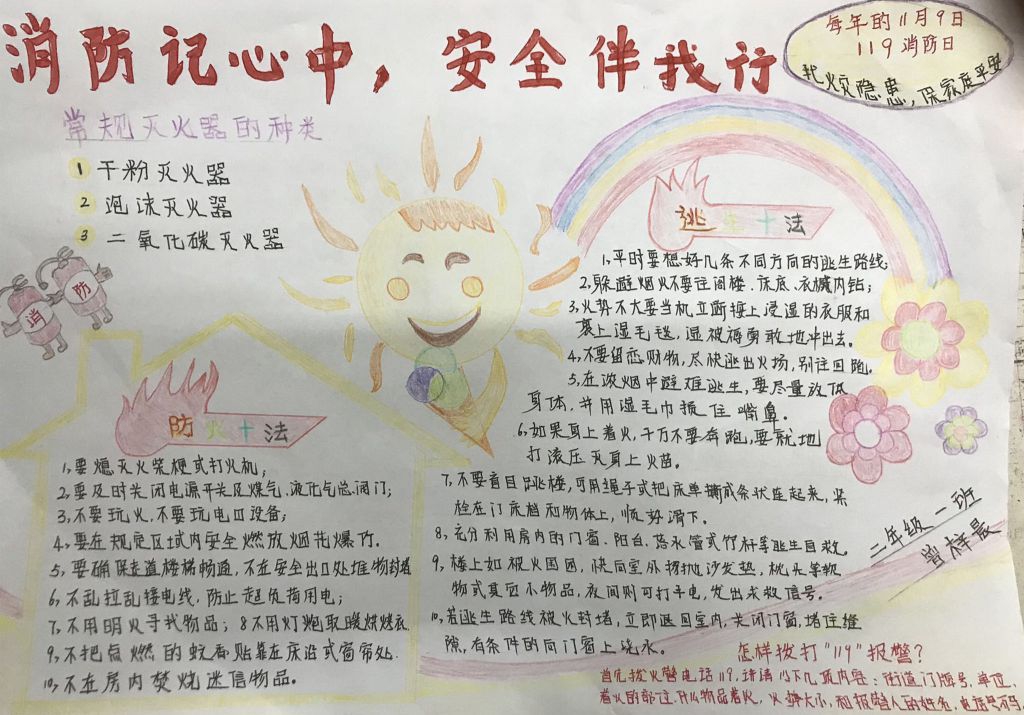 消防记心中，安全伴我行
每年的11月9日
119消防日
找火灾隐患，保家庭平安
常规灭火器的种类
1 干粉灭火器
2 泡沫灭火器
3 二氧化碳灭火器
消 防
防火十法
1，要熄灭火柴梗式打火机；
2，要及时关闭电源开关及煤气、液化气总阀门；
3，不要玩火，不要玩电口设备；
4，要在规定区域内安全燃放烟花爆竹。
5，要确保走道楼梯畅通，不在安全出口处堆物封堵
6，不乱拉乱接电线，防止超负荷用电；
7，不用明火寻找物品；8不用灯炮取暖烘烤衣
9，不把点燃的蚊香贴靠在床沿式窗帘处.
10，不在房内焚烧迷信物品。
逃生十法
1，平时要想好几条不同方向的逃生路线；
2，躲避烟火不要往阁楼、床底、衣橱内钻；
3，火势不大要当机立断接上浸湿的衣服和
裹上湿毛毯，湿被褥勇敢地冲出去。
4，不要留恋财物，尽快逃出火场，别往回跑。
5，在浓烟中避难逃生，要尽量放低
身体，并用湿毛巾捂住嘴鼻。
6，如果身上着火，千万不要奔跑，要就地
打滚压灭身上火苗。
7，不要盲目跳楼，可用绳子式把床单撕成条状连起来，紧
栓在门床档和物体上，顺势滑下。
8，充分利用房内的门窗、阳台、落水管式竹杆等逃生自救。
9，楼上如被火围困，快向室外扔抛沙发垫，枕头等软
物式其它小物品，夜间则可打手电，发出求救信号。
10，若逃生路线被火封堵，立即返回室内，关闭门窗，堵住缝
隙，有条件的向门窗上浇水。
二年级一班
曾梓晨
怎样拨打"119"报警？
首先拨火警电话119，讲清以下几项内容：街道门牌号、单位、
着火的部位、什么物品着火，火势大小，和报警人的姓名、电话号码。